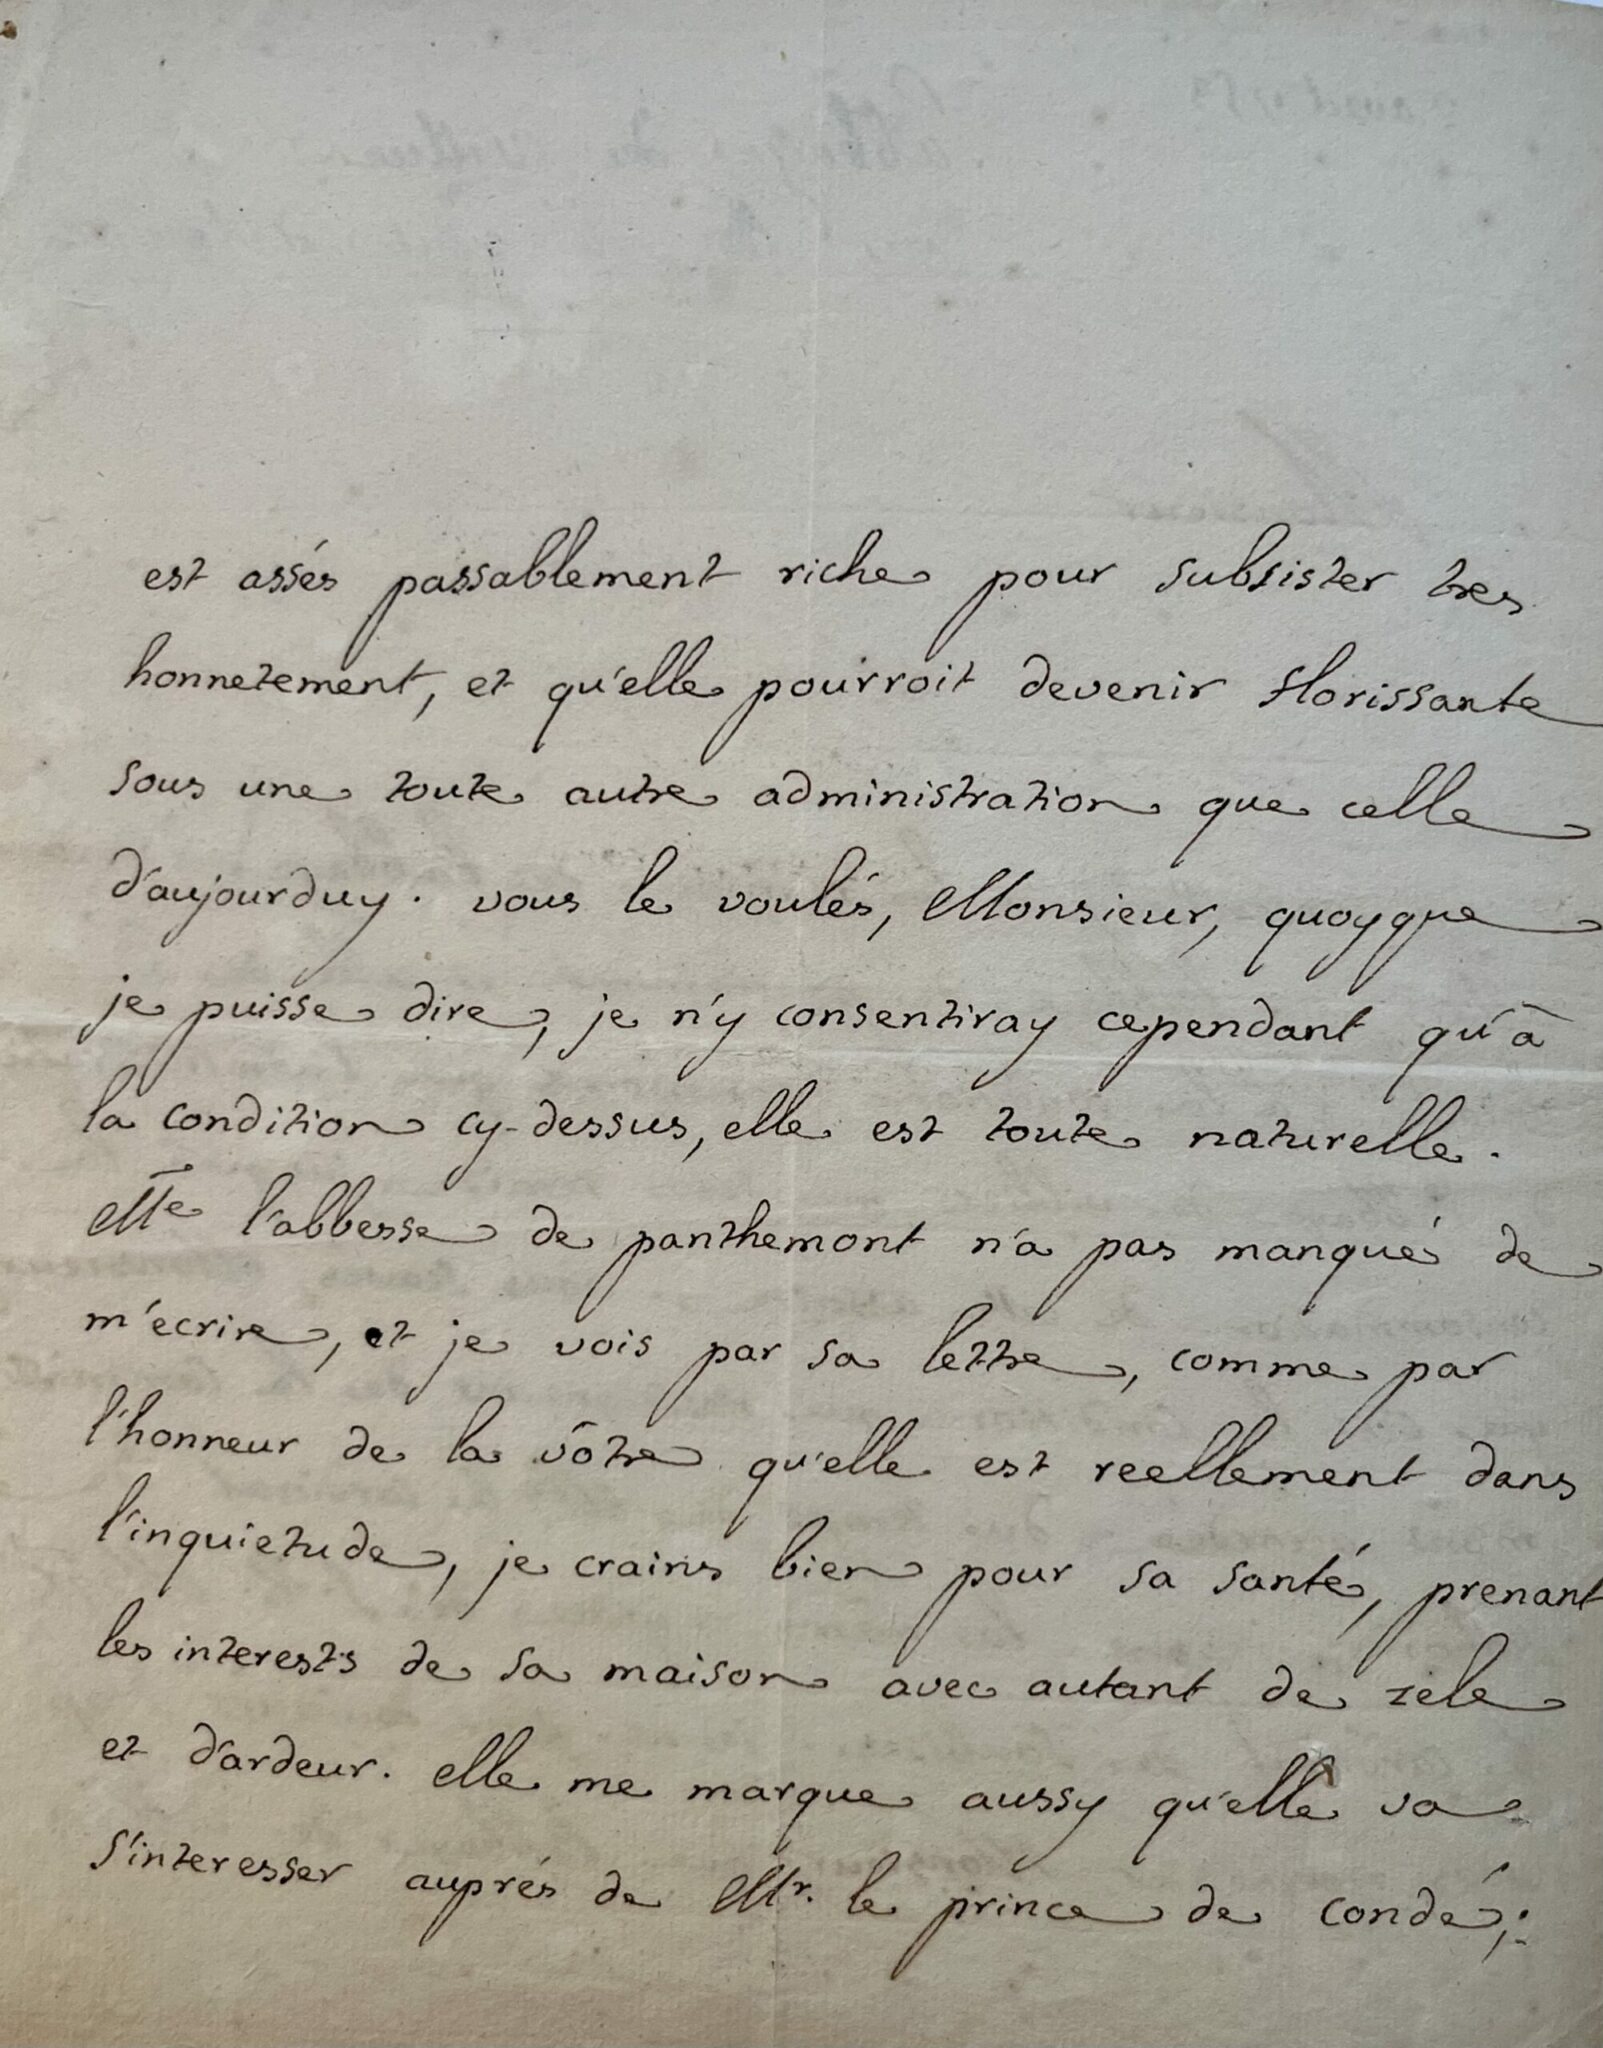 est assés passablement riche pour subsister tres
honnetement, et qu'elle pourroit devenir florissante
sous une toute autre administration que celle
d'aujourduy. vous le voulés, Monsieur, quoyque
je puisse dire, je n'y consentiray cependant qu'à
la condition cy-dessus, elle est toute naturelle.
Me l'abbesse de panthemont n'a pas manqué de
m'ecrire, et je vois par sa lettre, comme par
l'honneur de la vôtre qu'elle est reellement dans
l'inquietude, je crains bien pour sa santé, prenant
les interests de sa maison avec autant de zele
et d'ardeur. elle me marque aussy qu'elle va
s'interesser auprés de Mr. le prince de condé,: